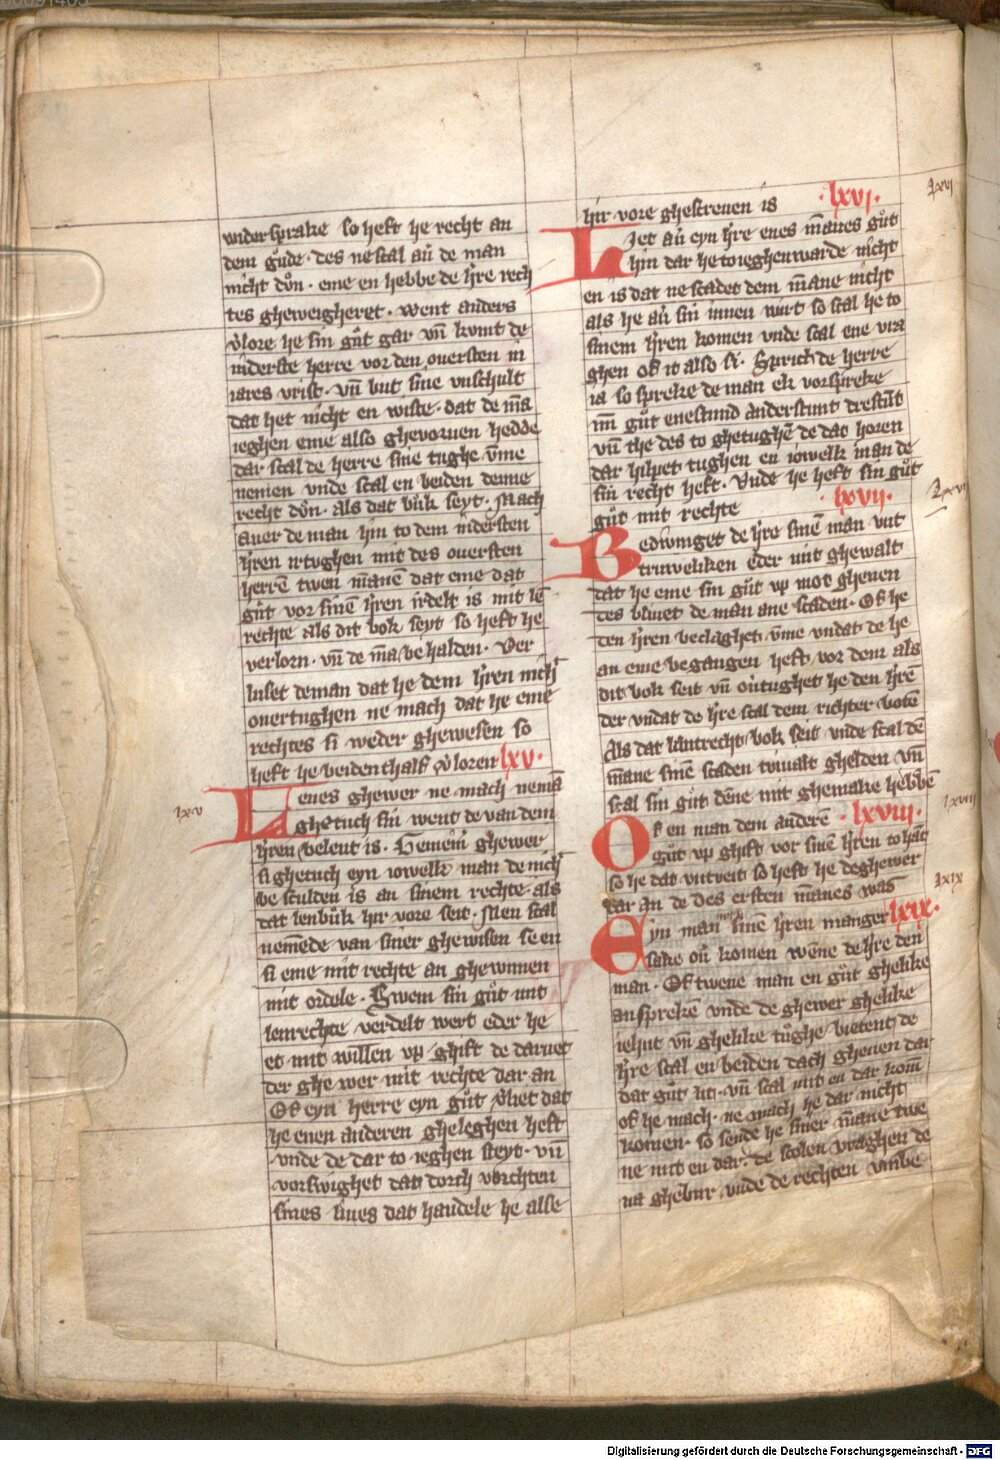 wider sprake so heft he recht an
dem gůde · des ne scal au̅ de man
nicht dôn · eme en hebbe de h̅re rech
tes gheweigheret · went anders
v̅lore he sin gůt gar vn̅ kvmt de
niderste herre vor den ouersten in
iares vrist · vn̅ but sine vnschult
dat het nicht en wiste · dat de ma̅
ieghen eme also ghevoruen hedde
dar scal de herre sine tughe v̅me
nemen vnde scal en beiden denne
recht dôn · als dat bůk seyt · Mach
auer de man hin to dem nidersten
h̅ren irtughen mit des ouersten
herre̅ twen ma̅ne̅ dat eme dat
gůt vor sine̅ h̅ren irdelt is mit le̅
rechte als dit bok seyt so heft he
verlorn · vn̅ de ma̅ behalden · Ver
luset de man dat he dem h̅ren nich
ouertughen ne mach dat he eme
rechtes si weder ghewesen so
heft he beidenthalf v̅loren lxv ·
lxv
Lenes ghewer ne mach nema̅
ghetuch sin went de van dem
h̅ren beleut is · Gemein ghewer
si ghetuch eyn iowelk man de nich
be sculden is an sinem rechte als
dat lenbůk hir vore seit · Men scal
nemede van siner ghewisen se en
si eme mit rechte an ghewunnen
mit ordele · Swem sin gůt mit
lenrechte verdelt wert eder he
et mit willen vp ghift de daruet
der ghe wer mit rechte dar an
Of eyn herre eyn gůt v̅liet dat
he enen anderen gheleghen heft
vnde de dar to ieghen steyt · vn̅
vorswighet dat dorch vorchten
sines liues dat handele he alse
hir vore ghescreuen is · lxvi ·
lxvi
Let au̅ eyn h̅re enes ma̅nes gůt
hin dar he to ieghenwarde nicht
en is dat ne scadet dem ma̅ne nicht
als he au̅ sin innen wirt so scal he to
sinem h̅ren komen vnde scal ene vra
ghen of it also si · Sprich de herre
ia so spreke de man ek vorspreke
min gůt enestund anderstunt drestu̅t
vn̅ the des to ghetughe̅ de dat horen
dar hilpet tughen en iowelk man de
sin recht heft · Vnde he heft sin gůt
gůt mit rechte · lxvii ·
Bedwinget de h̅re sine̅ man vnt
truweliken eder mit ghewalt
dat he eme sin gůt vp mot gheuen
des bliuet de man ane scaden · Of he
den h̅ren beclaghet v̅me vndat de he
an eme begangen heft vor dem als
dit bok seit vn̅ ou̅tughet he den h̅re̅
der vndat de h̅re scal dem richter bote̅
Als dat lantrecht bok seit vnde scal de̅
ma̅ne sine̅ scaden twiualt ghelden vn̅
scal sin gůt de̅ne mit ghemake hebbe̅
lxviii
Of en man dem andere̅ · lxviii ·
gůt vp ghift vor sine̅ h̅ren to ha̅t
so he dat vntveit so heft he de ghewer
dar an de des ersten ma̅nes was
lxix
Eyn man sine̅ h̅ren manger lxix ·
sake ou̅ komen we̅ne de h̅re den
man · Of twene man en gůt ghelike
anspreke̅ vnde de ghewer ghelike
iehnt vn̅ ghelike tůghe bietent de
h̅re scal en beiden dach gheuen dar
dat gůt lit · vn̅ scal mit en dar kom̅
of he mach · ne mach he dar nicht
komen · so sende he siner ma̅ne twe
ne mit en dar · de scolen vraghen de
na ghebur vnde de rechten vmbe
Digitalisierung gefördert durch die Deutsche Forschungsgemeinschaft - DFG